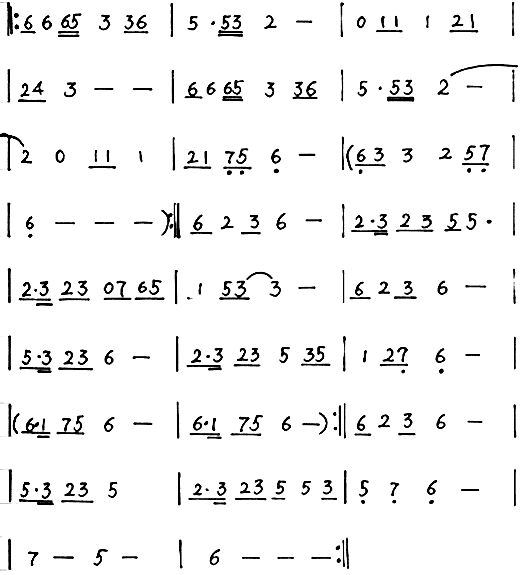 ‖: 6 6 65 3 36 | 5 · 53 2 – | 0 11 1 21 |
| 24 3 – – | 6 6 65 3 36 | 5 · 53 2 – |
| 2 0 11 1 | 21 75 6 – | (63 3 2 57 |
| 6 – – – ) :‖ 6 2 3 6 – | 2·3 23 55 · |
| 2·3 23 07 65 | 1 53 3 – | 6 2 3 6 – |
| 5·3 23 6 – | 2·3 23 5 35 | 1 27 6 – |
| (6·1 75 6 – | 6·1 75 6 – ) :‖ 6 2 3 6 – |
| 5·3 23 5 | 2·3 23 5 5 3 | 5 7 6 – |
| 7 – 5 – | 6 – – – :‖